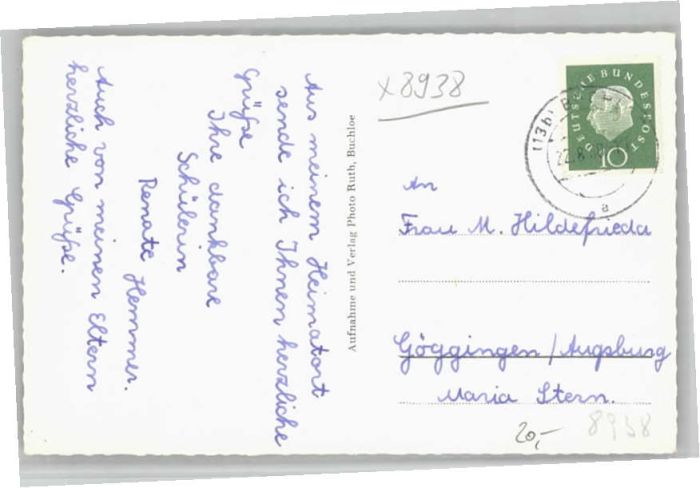 Aus meinem Heimatort
sende ich Ihnen herzliche
Grüße
Ihre dankbare
Schülerin
Renate Hemmer.
Auch von meinen Eltern
herzliche Grüße.
Aufnahme und Verlag Photo Ruth, Buchloe
x8938
DEUTSCHE BUNDESPOST
10
(13b)
a
An
Frau M. Hildefrieda
Göggingen/Augsburg
Maria Stern.
20,-
8938